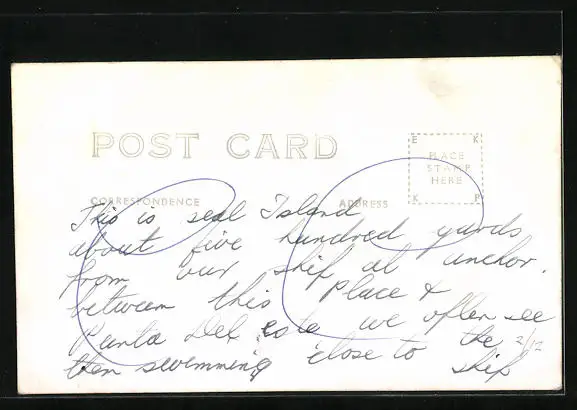 POST CARD
E K
PLACE
STAMP
HERE
K P
CORRESPONDENCE
ADDRESS
This is seal Island
about five hundred yards
from our ship at anchor.
between this place &
Punta Del este we often see
them swimming close to the ship
2/12